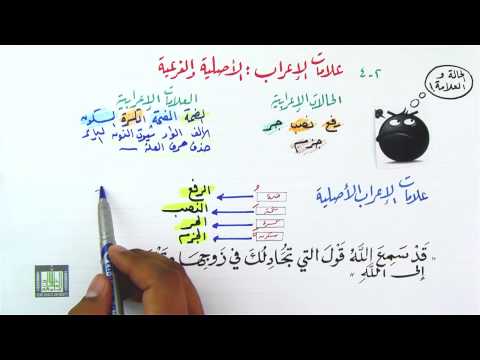 ٢-٤ علامات الإعراب: الأصلية والفرعية
الحالة و
العلامة!
الحالات الإعرابية
رفع نصب جر
جزم
العلامات الإعرابية
الضمة الفتحة الكسرة السكون
الألف الواو ثبوت النون الياء
حذف حرف العلة
علامات الإعراب الأصلية
ضمة
الرفع
النصب
كسرة
الجر
سكون
الجزم
قَدْ سَمِعَ اللَّهُ قَوْلَ الَّتِي تُجَادِلُكَ فِي زَوْجِهَا
إِلَى اللَّهِ